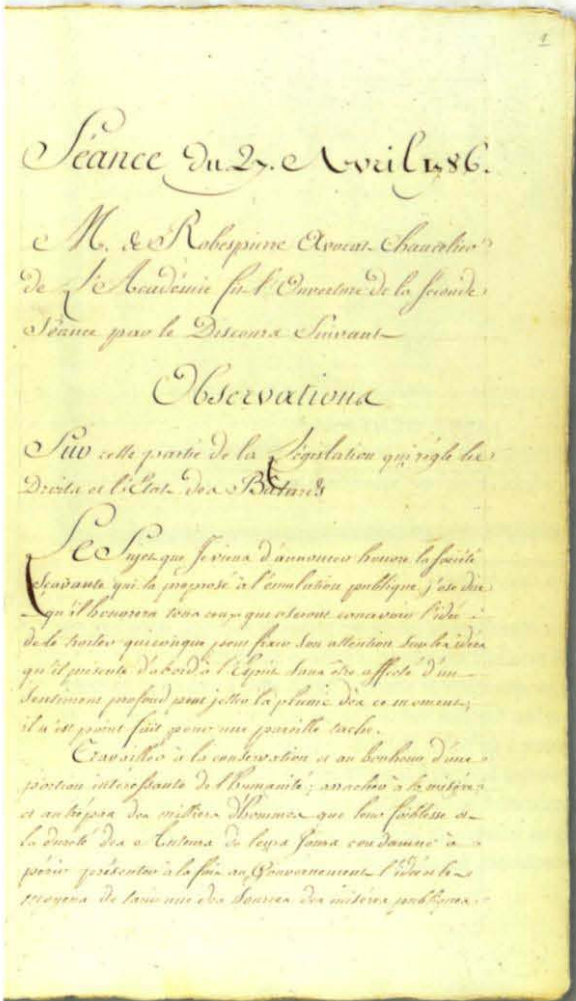 1
Séance du 27. Avril 1786.
M. de Robespierre Avocat Chancelier
de L'Académie fit l'Ouverture de la seconde
Séance par le Discours Suivant
Observations
Sur cette partie de la Législation qui règle les
Droits et l'État des Bâtards
Le Sujet que Je viens d'annoncer honore la Société
Sçavante qui l'a proposé à l'émulation publique, j'ose dire
qu'il honorera tous ceux que oseront concevoir l'idée
de le traiter quiconque peut fixer son attention sur les idées
qu'il présente d'abord à l'Esprit sans être affecté d'un
sentiment profond peut jetter la plume dès ce moment;
il n'est point fait pour une pareille tache.
Travailler à la conservation et au bonheur d'une
portion intéressante de l'humanité; arracher à la misère
et au trépas des milliers d'hommes que leur foiblesse et
la dureté des Auteurs de leurs Jours condamne à
périr présenter à la fois au Gouvernement l'idée et les
moyens de tarir une des sources des misères publiques